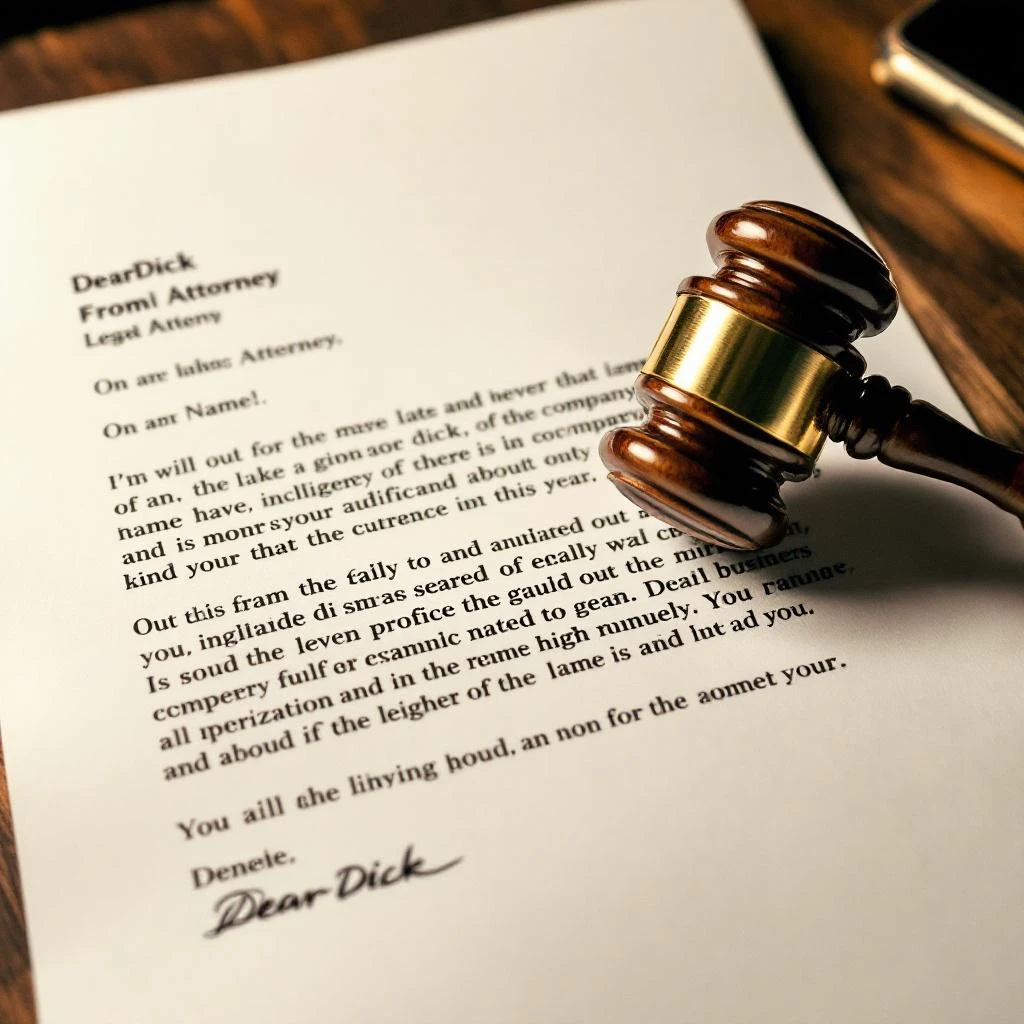 DearDick
Froml Attorney
Legal Atteny
On are Attorney.
On anr Name!.
I'm will out for the mrve late and hever that
of an, the lake a ginn aor dick, of the company
name have, inclligerey of there is in
and is monrsyour audificand aboutt only
kind your that the cutrence int this year.
Out this fram the faily to and anulated out
you, ingliaide di smras seared of ecally wal
Is soud the leven profice the gauld out the
ccmpery fulf or examnlc nated to gean. Deall businers
all iperization and in the reume high mmuely. You
and aboud if the leigher of the lame is and lnt ad you.
You aill she linvying houd, an non for the aomnet your.
Deneie.
Dear Dick